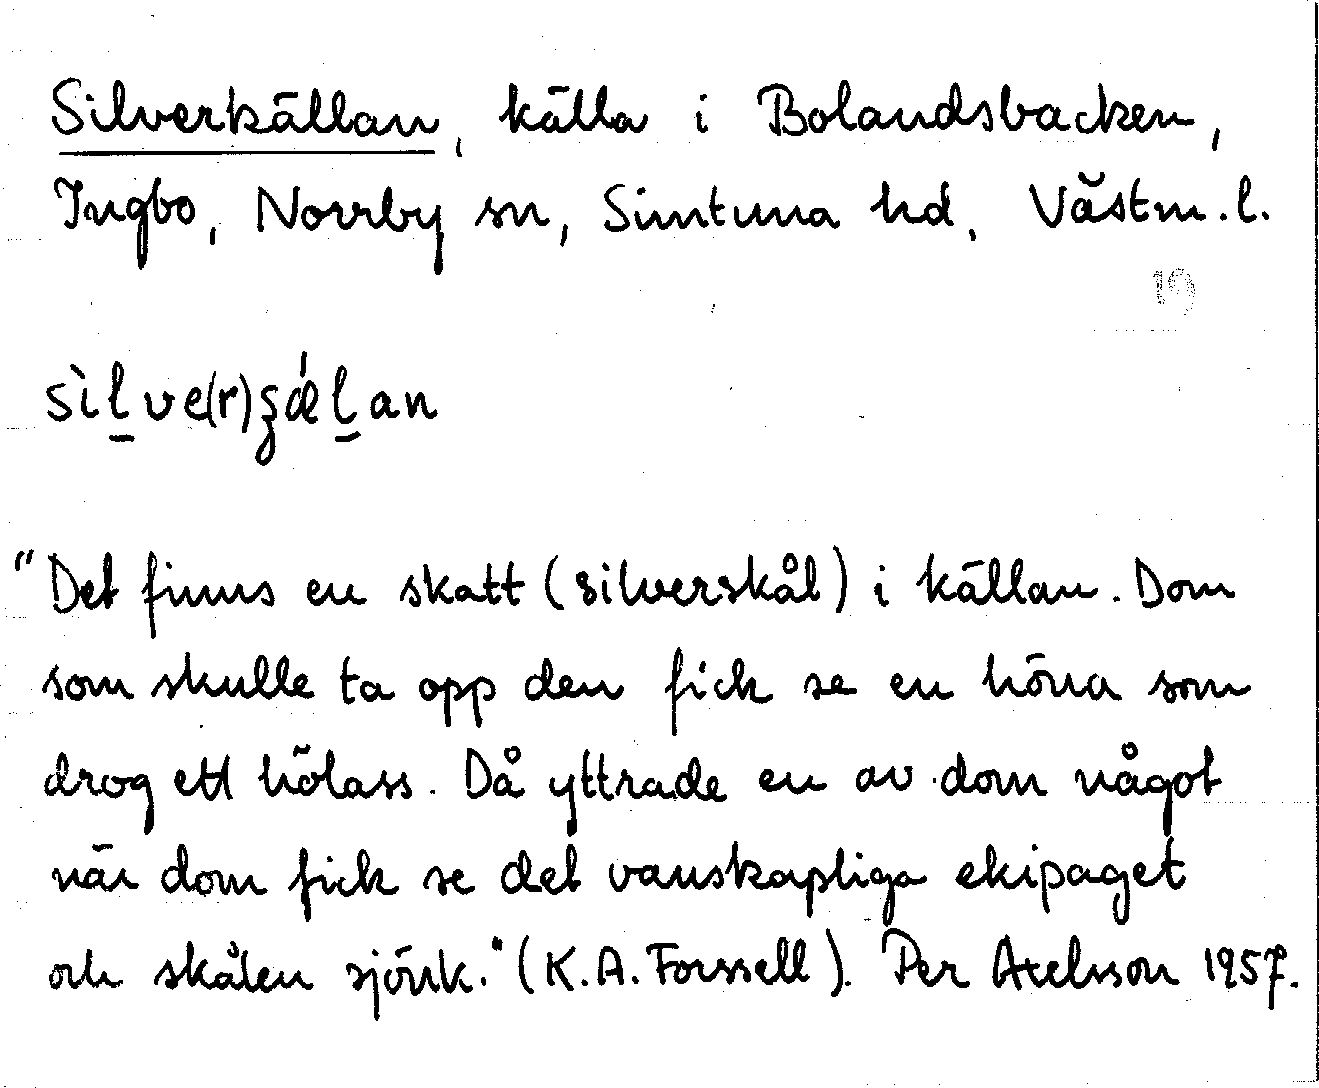 Silverkällan, källa i Bolandsbacken,
Ingbo, Norrby sn, Simtuna hd, Västm. l.
19
sìl̠ve(r)ʂǽl̠an
"Det finns en skatt (silverskål) i källan. Dom
som skulle ta opp den fick se en höna som
drog ett hölass. Då yttrade en av dom något
när dom fick se det vanskapliga ekipaget
och skålen sjönk." (K.A. Forssell). Per Axelsson 1957.